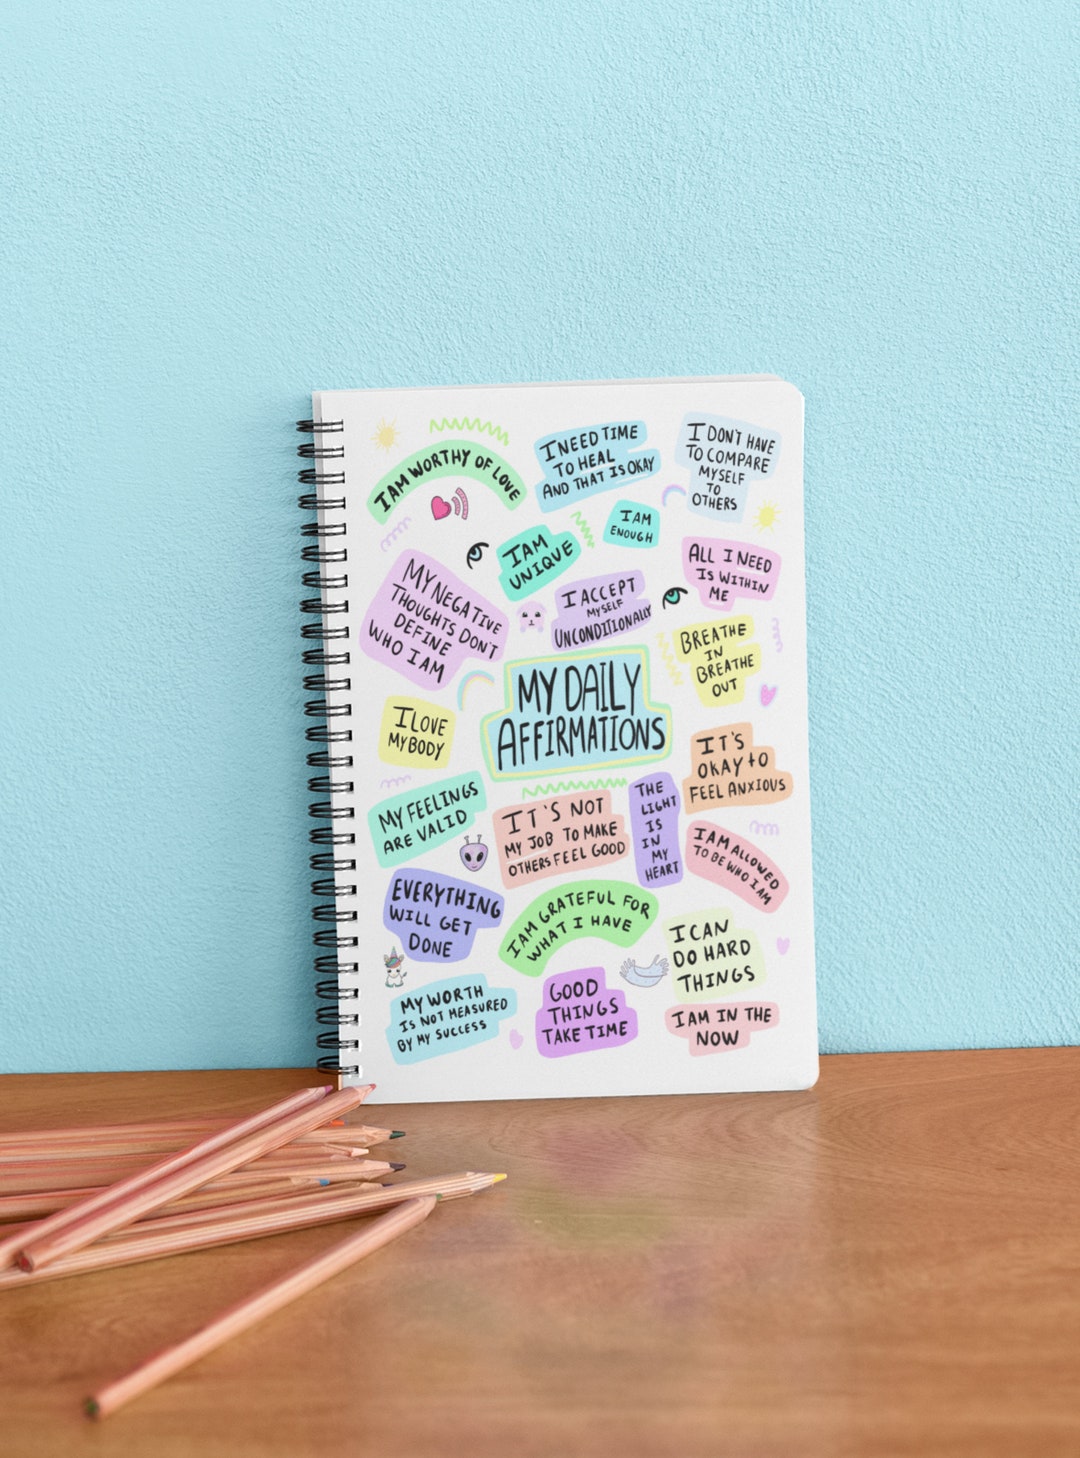 I AM WORTHY OF LOVE
I NEED TIME
TO HEAL
AND THAT IS OKAY
I DON'T HAVE
TO COMPARE
MYSELF
TO
OTHERS
I AM
UNIQUE
I AM
ENOUGH
ALL I NEED
IS WITHIN
ME
MY NEGATIVE
THOUGHTS DON'T
DEFINE
WHO I AM
I ACCEPT
MYSELF
UNCONDITIONALLY
BREATHE
IN
BREATHE
OUT
MY DAILY
AFFIRMATIONS
I LOVE
MY BODY
IT'S
OKAY TO
FEEL ANXIOUS
MY FEELINGS
ARE VALID
IT'S NOT
MY JOB TO MAKE
OTHERS FEEL GOOD
THE
LIGHT
IS
IN
MY
HEART
I AM ALLOWED
TO BE WHO I AM
EVERYTHING
WILL GET
DONE
I AM GRATEFUL FOR
WHAT I HAVE
I CAN
DO HARD
THINGS
MY WORTH
IS NOT MEASURED
BY MY SUCCESS
GOOD
THINGS
TAKE TIME
I AM IN THE
NOW